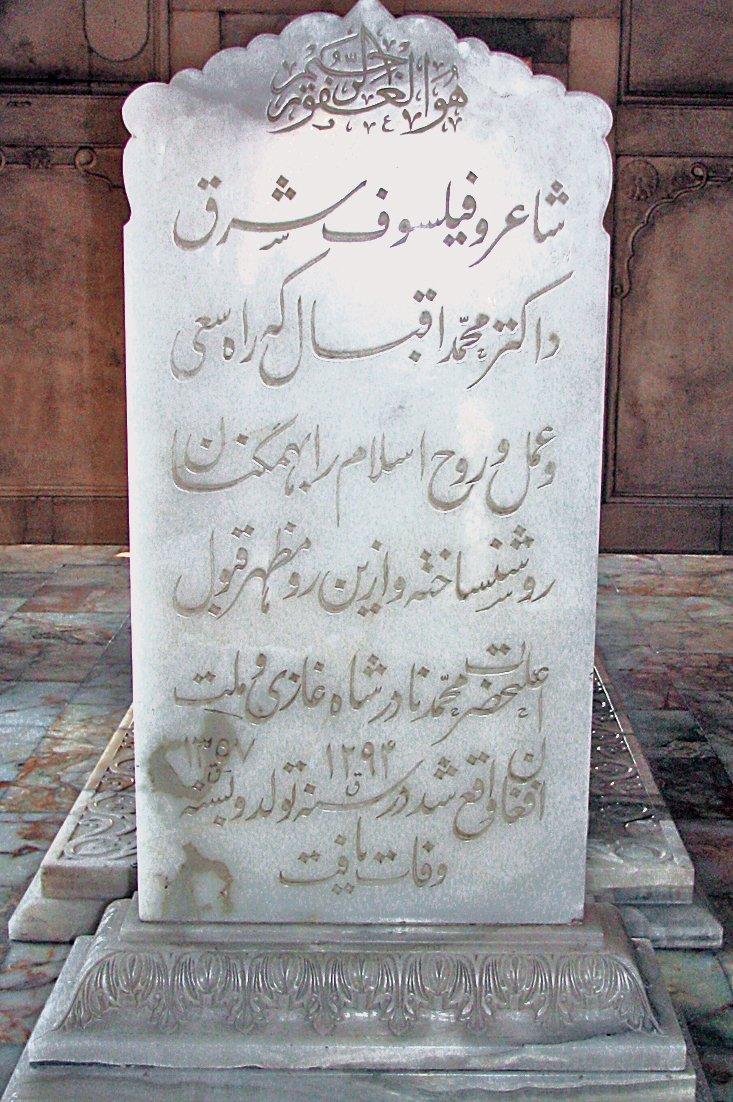 هو الغفور الرحیم
شاعر و فیلسوف شرق
داکتر محمّد اقبال که راه سعی
و عمل و روح اسلام را بهمگنان
روشن ساخته و ازین رو مظهر قبول
اعلیحضرت محمّد نادر شاه غازی و ملت
۱۲۹۴ ۱۳۵۷
افغان واقع شد در سنه ق تولد و بسنه ق
وفات یافت